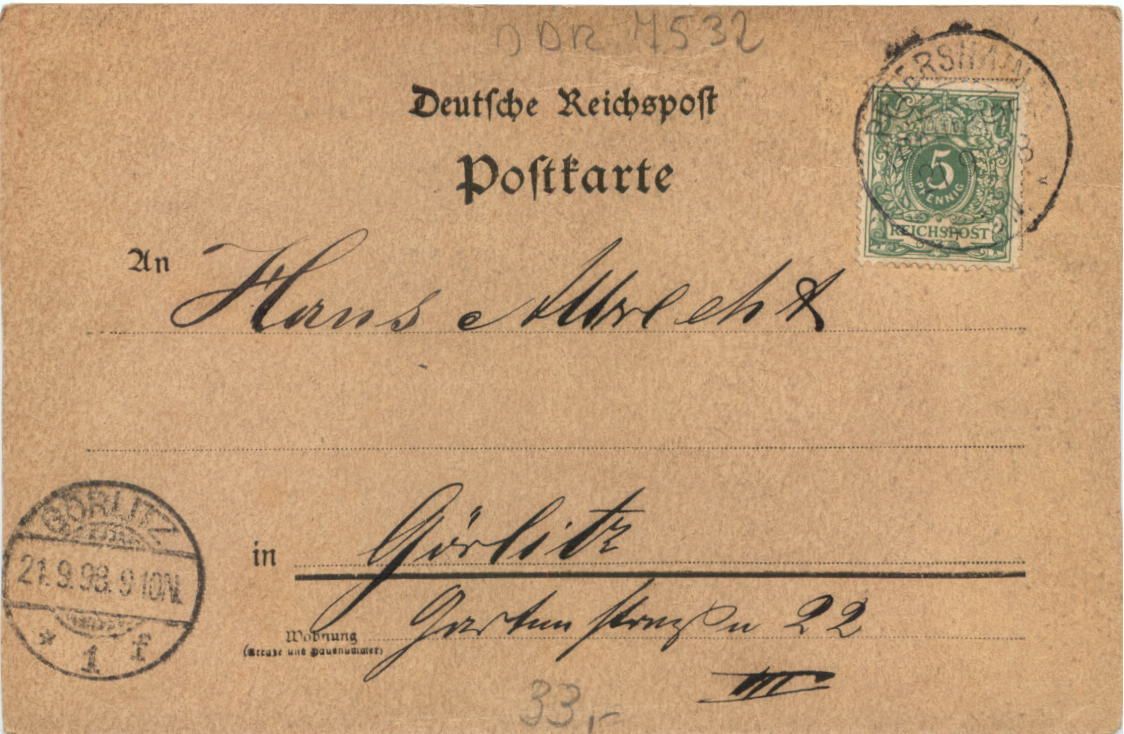 DDR 7532
Deutsche Reichspost
Postkarte
5
PFENNIG
REICHSPOST
An Hans Albrecht
GÖRLITZ
21.9.98.9-10N.
* 1 f
in Görlitz
Wohnung
(Straße und Hausnummer)
Gartenstraße 22
III
33,-